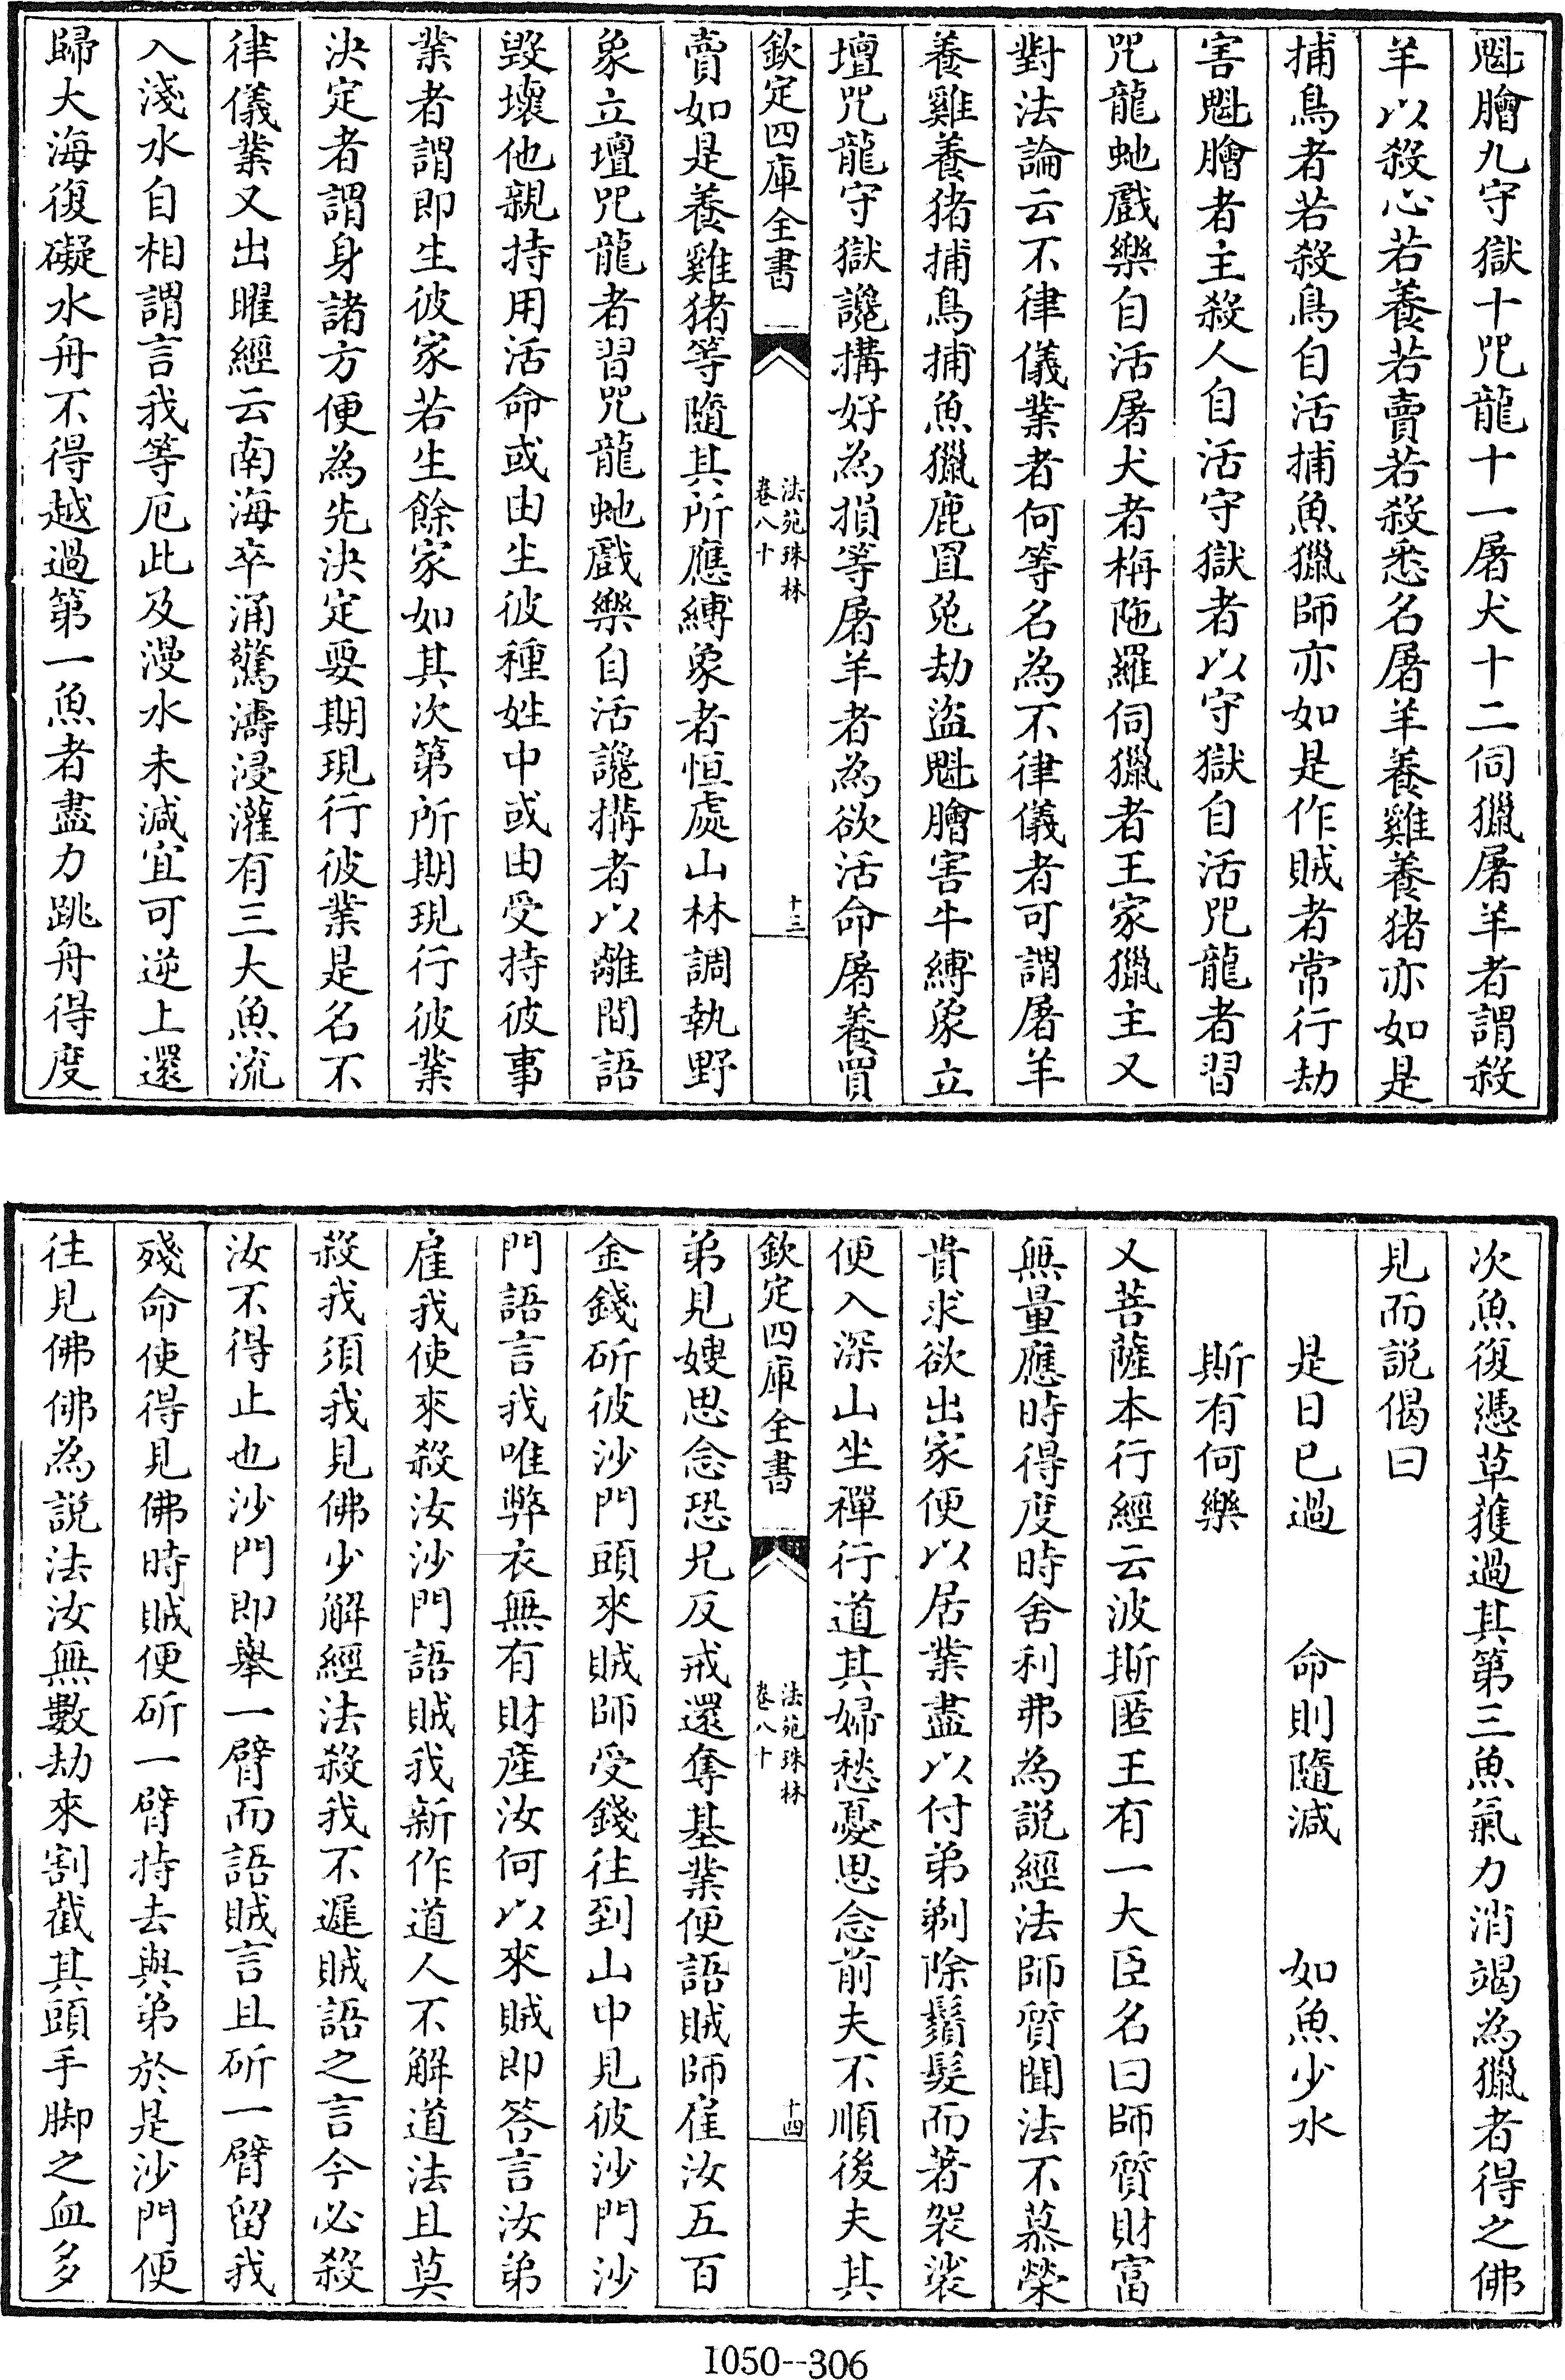 魁膾九守獄十咒龍十一屠犬十二伺獵屠羊者謂殺
羊以殺心若養若賣若殺悉名屠羊養雞養猪亦如是
捕鳥者若殺鳥自活捕魚獵師亦如是作賊者常行劫
害魁膾者主殺人自活守獄者以守獄自活咒龍者習
咒龍虵戲樂自活屠犬者栴陁羅伺獵者王家獵主又
對法論云不律儀業者何等名為不律儀者可謂屠羊
養雞養猪捕鳥捕魚獵鹿罝兔劫盜魁膾害牛縛象立
壇咒龍守獄讒搆好為損等屠羊者為欲活命屠養買
欽定四庫全書
法苑珠林
卷八十
十三
賣如是養雞猪等隨其所應縛象者恒處山林調執野
象立壇咒龍者習咒龍虵戲樂自活讒搆者以離間語
毀壞他親持用活命或由生彼種姓中或由受持彼事
業者謂即生彼家若生餘家如其次第所期現行彼業
決定者謂身諸方便為先決定要期現行彼業是名不
律儀業又出曜經云南海卒涌驚濤浸灌有三大魚流
入淺水自相謂言我等厄此及漫水未減宜可逆上還
歸大海復礙水舟不得越過第一魚者盡力跳舟得度
次魚復憑草獲過其第三魚氣力消竭為獵者得之佛
見而說偈曰
是日已過　命則隨減　如魚少水
斯有何樂
又菩薩本行經云波斯匿王有一大臣名曰師質財富
無量應時得度時舍利弗為說經法師質聞法不慕榮
貴求欲出家便以居業盡以付弟剃除鬚髮而著袈裟
便入深山坐禪行道其婦愁憂思念前夫不順後夫其
欽定四庫全書
法苑珠林
卷八十
十四
弟見嫂思念恐兄反戒還奪基業便語賊師雇汝五百
金錢斫彼沙門頭來賊師受錢往到山中見彼沙門沙
門語言我唯弊衣無有財産汝何以來賊即答言汝弟
雇我使來殺汝沙門語賊我新作道人不解道法且莫
殺我須我見佛少解經法殺我不遲賊語之言今必殺
汝不得止也沙門即舉一臂而語賊言且斫一臂留我
殘命使得見佛時賊便斫一臂持去與弟於是沙門便
往見佛佛為說法汝無數劫來割截其頭手脚之血多
1050--306